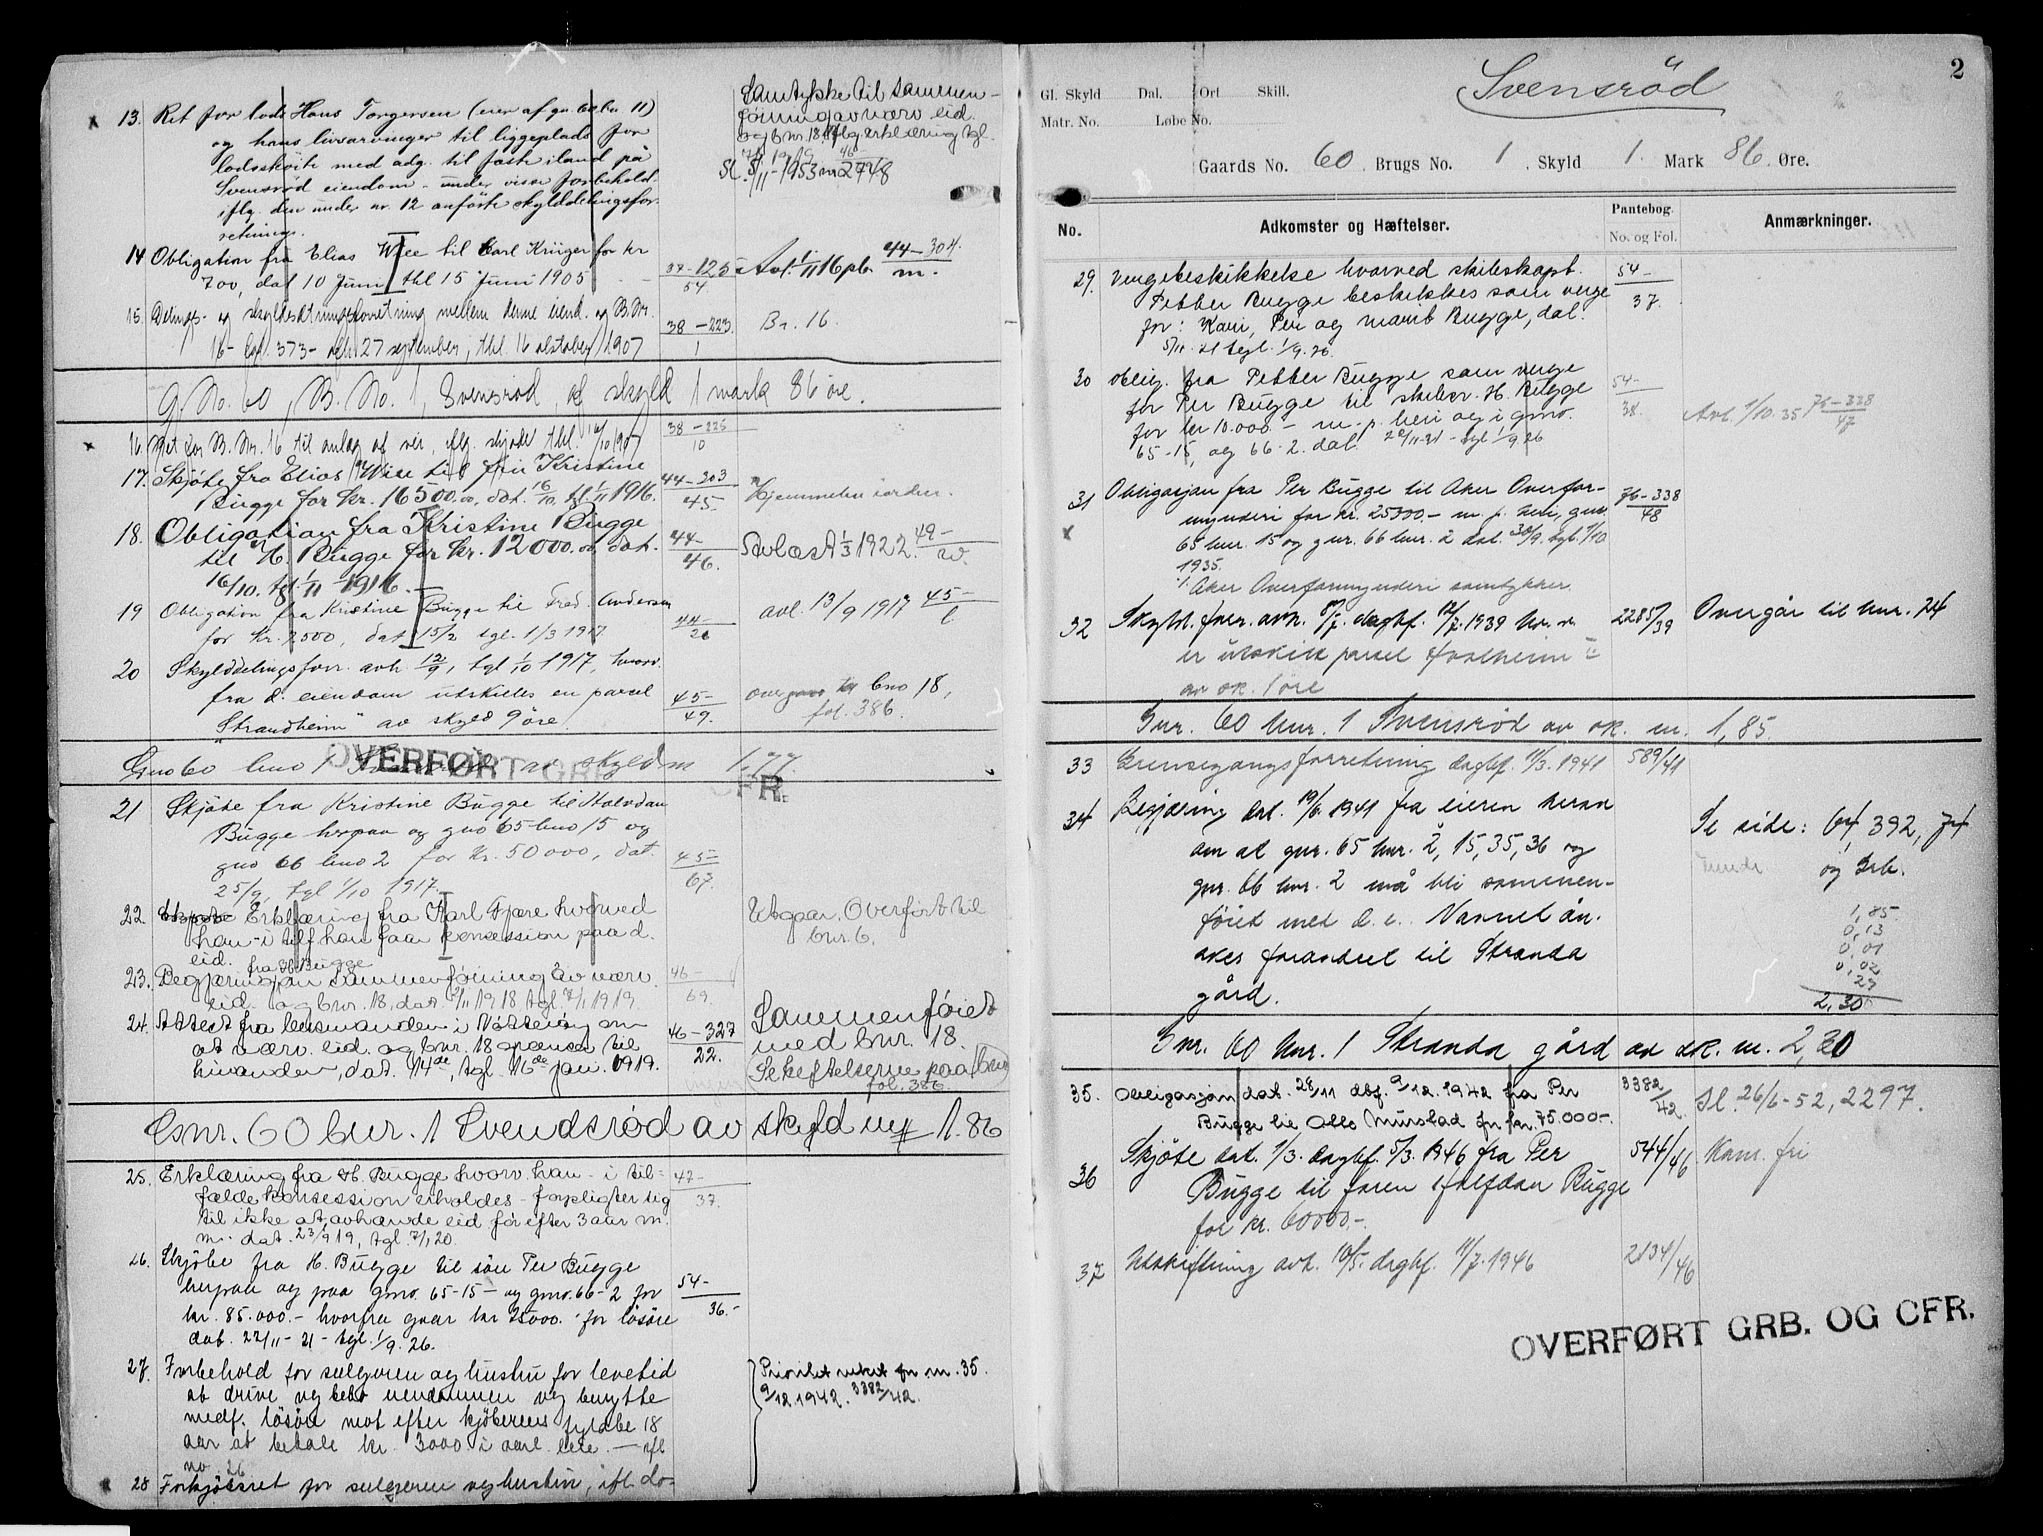 13. Ret for lods Hans Torgersen (eier af gn 60 bn 11)
og hans livsarvinger til liggeplads for
lodsskøite med adg. til fæste iland på
Svensrød eiendom - under visse forbehold -
iflg. den under nr. 12 anførte skylddelingsfor-
retning.
Samtykke til sammen-
føining av nærv. eid.
og bnr. 18 iflg erklæring tgl.
Sl. 5/11-1953 nr 2748
14 Obligation fra Elias Wiee til Carl Krüger for kr
700, dat 10 Juni tbl 15 Juni 1905
37-125
54.
Avl. 1/11 16 pb. 44-304.
m.
15. Delings- og skyldsetningsforretning mellem denne eiend. og B.Nr.
16 - fol. 373 - afh. 27 september, tbl 16 oktober 1907
38-223
1
Br. 16.
G. No. 60, B. No. 1, Svensrød, af skyld 1 mark 86 øre.
16. Ret for B. Nr. 16 til anlæg af vei, iflg. skjøde tbl. 16/10 1907
38-225
10
17. Skjøte fra Elias Wiee til fru Kristine
Bugge for Kr. 16500.00, dat. 16/10, tgl 1/11 1916.
44-203
45.
Hjemmelen iorden.
18. Obligation fra Kristine Bugge
til H. Bugge for Kr. 12000.00, dat.
16/10. tgl 1/11 1916.
44-
46.
Avlæst 1/3 1922. 49-
19 Obligation fra Kristine Bugge til Fred. Andersen
for Kr. 2500, dat 15/2 tgl. 1/3 1917
44-
avl. 13/9 1917 45-
20 Skylddelingsforr. avh. 12/9, tgl 1/10 1917, hvorv.
fra d. eiendom utskilles en parcel
"Strandheim" av skyld 9 øre
45-
49.
overført til bno 18,
fol. 386.
Gno 60 bno 1 av skyld m 1.77
OVERFØRT GRB CFR.
21 Skjøte fra Kristine Bugge til Halvdan
Bugge herpaa og gno 65 bno 15 og
gno 66 bno 2 for Kr. 50000, dat.
25/9, tgl 1/10 1917.
45-
67.
22 Erklæring fra Karl Fjære hvorved
han - i tilf. han faar koncession paa d.
eid.
Utgaar. Overført til
bnr. 6.
23. Begjæring fra H. Bugge om sammenføining av nærv.
eid. og bnr. 18, dat 9/11 1918 tgl 7/1 1919.
46-
69.
24. Attest fra lensmanden i Nøtterøy om
at nærv. eid. og bnr. 18 grænser til
hinanden, dat. 14de, tgl. 16de jan. 1919.
46-327
22.
Sammenføiet
med bnr. 18.
Se heftelserne paa bnr
fol. 386.
Gnr. 60 bnr. 1 Svendsrød av skyld m 1.86
25. Erklæring fra H. Bugge hvorv. han - i til-
fælde konsession erholdes - forpligter sig
til ikke at avhænde eid før efter 3 aar m.
m. dat. 23/9 19, tgl. 7/1 20.
47-
37.
26. Skjøte fra H. Bugge til søn Per Bugge
herpaa og paa gno. 65-15 - og gno. 66-2 for
kr. 85.000.- hvorfra gaar kr 25000.- for løsøre
dat. 22/11-21 - tgl. 1/9.26.
54-
36.-
27. Forbehold for sælgeren og hustru for levetid
at drive og bebo eiendommen og benytte
medf. løsøre mot efter kjøberens fyldte 18
aar at betale kr. 3000. i aarl. leie. - ifl
no 26
Prioritet veket for nr. 35.
9/12.1942. 3382/42.
28 Forkjøpsret for sælgeren og hustru, ifl. do-
2
Gl. Skyld Dal. Ort Skill.
Matr. No. Løbe No.
Svensrød
Gaards No. 60 Brugs No. 1. Skyld 1. Mark 86. Øre.
No. Adkomster og Hæftelser. Pantebog. No. og Fol. Anmærkninger.
29. Vergebeskikkelse hvorved skibskapt.
Petter Bugge beskikkes som verge
for: Kari, Per og Marit Bugge, dal.
5/11.21 tgl. 1/9.26.
54-
37.
30 oblig. fra Petter Bugge som verge
for Per Bugge til skibsr. H. Bugge
for kr 10.000.- m. p. heri og i gno.
65-15, og 66-2. dat. 22/11-21 - tgl 1/9 26
54-
38.
Avl. 1/10.35 76-338
47
31 Obligasjon fra Per Bugge til Aker Overfor-
mynderi for kr. 25000.- m. p. heri, gnr.
65 bnr. 15 og gnr. 66 bnr. 2 dat. 30/9. tgl. 1/10
1935.
./. Aker Overformynderi samtykker.
76-338
48
32 Skyld. forr. avh. 8/7. dagbf. 12/7. 1939 hv. v.
er utskilt parsel Solheim
av sk. 1 øre
2285/39
Overgår til bnr. 24
Gnr. 60 bnr. 1 Svensrød av sk. m. 1,85.
33 Grensegangsforretning dagbf. 11/3. 1941
589/41
34 Begjæring dat. 19/6. 1941 fra eieren heran
om at gnr. 65 bnr. 2, 15, 35, 36 og
gnr. 66 bnr. 2 må bli sammen-
føiet med d. e. Navnet øn-
skes forandret til Stranda
gård.
Se side: 64, 392, 74
og Grb.
1,85
0,13
0,01
0,02
29
2,30
Gnr. 60 bnr. 1 Stranda gård av sk. m. 2,30
35. Obligasjon dat. 28/11 dbf. 9/12. 1942 fra Per
Bugge til Otto Murstad for kr. 75.000.-
3382/42.
Sl. 26/6-52, 2297.
36 Skjøte dat. 1/3. dagbf. 5/3. 1946 fra Per
Bugge til faren Halfdan Bugge
for kr. 60000.-
544/46
Kans. fri
37 Utskiftning avh. 10/5. dagbf. 11/7. 1946
2134/46
OVERFØRT GRB. OG CFR.